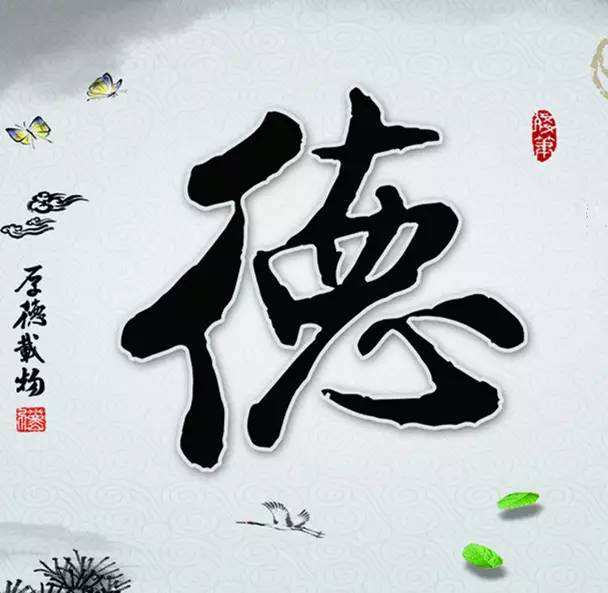 德
厚德載物